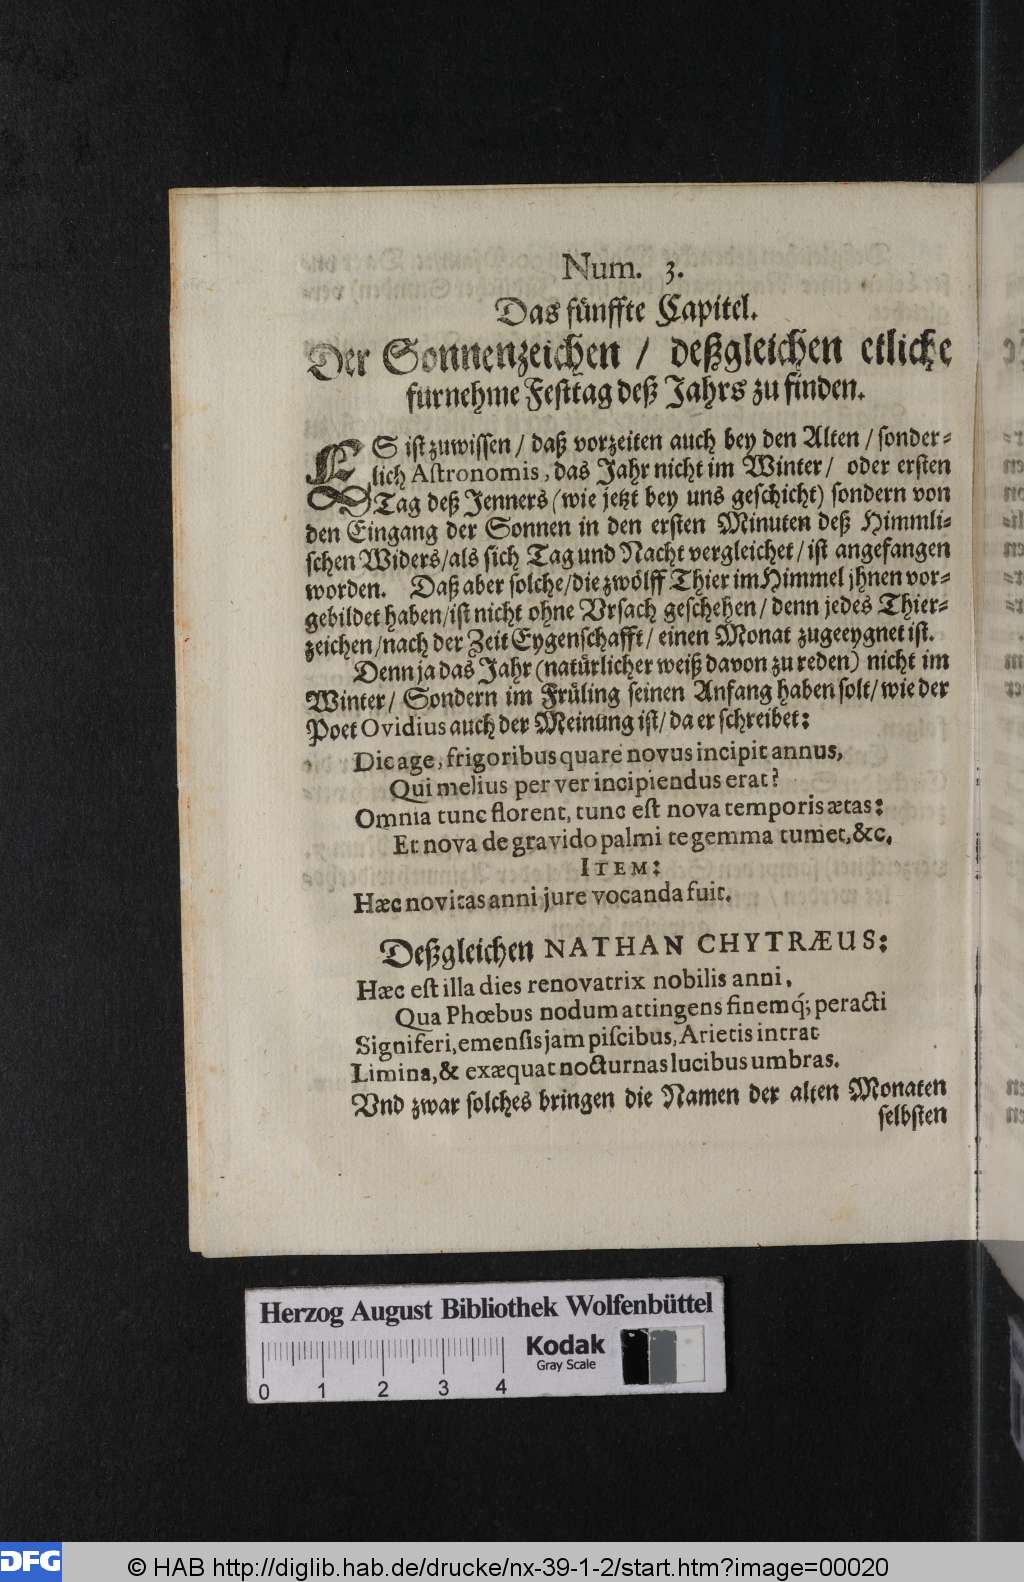 Num. 3.
Das fünffte Capitel.
Der Sonnenzeichen / deßgleichen etliche
furnehme Festtag deß Jahrs zu finden.
ES ist zuwissen / daß vorzeiten auch bey den Alten / sonder-
lich Astronomis, das Jahr nicht im Winter / oder ersten
Tag deß Jenners (wie jetzt bey uns geschicht) sondern von
den Eingang der Sonnen in den ersten Minuten deß Himmli-
schen Widers / als sich Tag und Nacht vergleichet / ist angefangen
worden. Daß aber solche / die zwölff Thier im Himmel jhnen vor-
gebildet haben / ist nicht ohne Vrsach geschehen / denn jedes Thier-
zeichen / nach der Zeit Eygenschafft / einen Monat zugeeygnet ist.
Denn ja das Jahr (natürlicher weiß davon zu reden) nicht im
Winter / Sondern im Früling seinen Anfang haben solt / wie der
Poet Ovidius auch der Meinung ist / da er schreibet:
Dic age, frigoribus quare novus incipit annus,
Qui melius per ver incipiendus erat?
Omnia tunc florent, tunc est nova temporis ætas:
Et nova de gravido palmi te gemma tumet, &c.
ITEM:
Hæc novitas anni jure vocanda fuit.
Deßgleichen NATHAN CHYTRÆUS:
Hæc est illa dies renovatrix nobilis anni,
Qua Phœbus nodum attingens finemq́; peracti
Signiferi, emensis jam piscibus, Arietis intrat
Limina, & exæquat nocturnas lucibus umbras.
Vnd zwar solches bringen die Namen der alten Monaten
selbsten
Herzog August Bibliothek Wolfenbüttel
Kodak
Gray Scale
0 1 2 3 4
DFG © HAB http://diglib.hab.de/drucke/nx-39-1-2/start.htm?image=00020